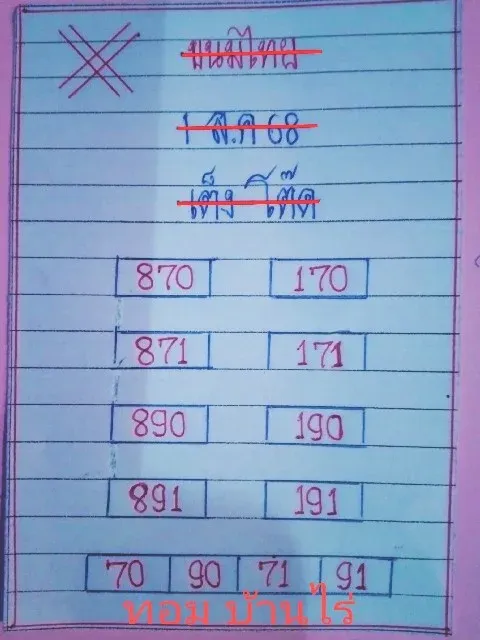 ขนมไทย
1 ส.ค 68
เต็ง โต๊ด
870 170
871 171
890 190
891 191
70 90 71 91
ทอม บ้านไร่